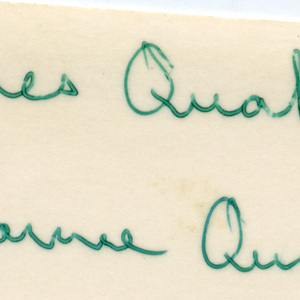 nes Qua
anne Qu